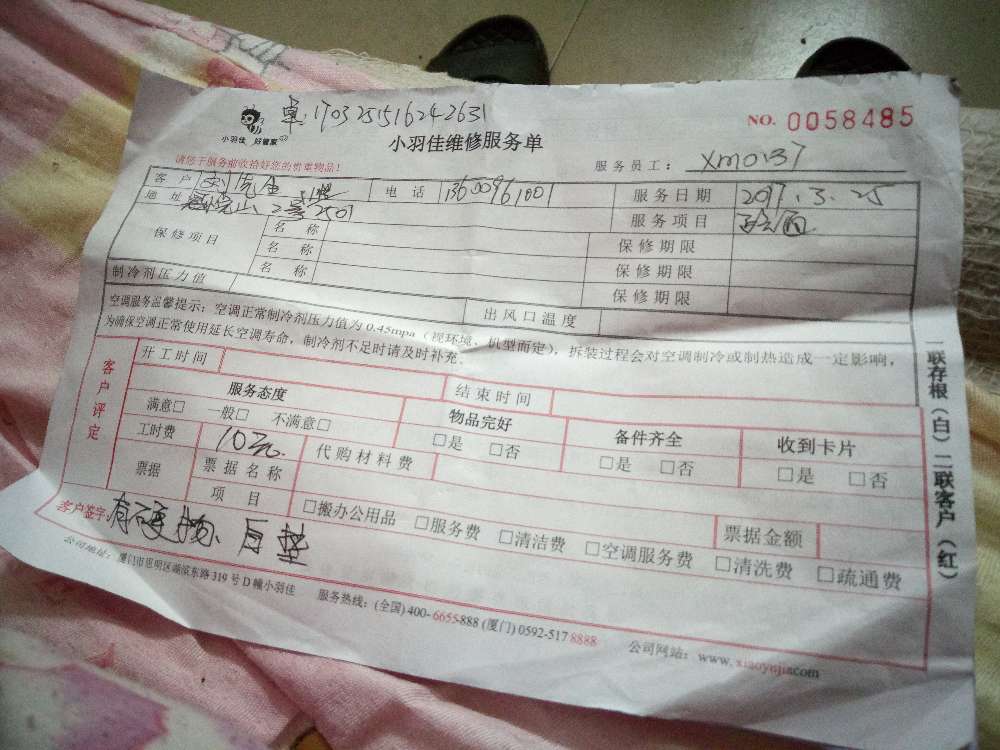 单:1703251516242631
NO. 0058485
小羽佳 好管家
小羽佳维修服务单
请您于服务前收拾好您的贵重物品!
服务员工: xm0137
客户 电话 13600961001 服务日期 2017.3.25
地址 2号2501 服务项目
保修项目 名称 保修期限
名称 保修期限
名称 保修期限
制冷剂压力值 出风口温度
空调服务温馨提示:空调正常制冷剂压力值为0.45mpa(视环境、机型而定),拆装过程会对空调制冷或制热造成一定影响,
为确保空调正常使用延长空调寿命,制冷剂不足时请及时补充.
客户评定 开工时间 结束时间
服务态度 物品完好 备件齐全 收到卡片
满意□ 一般□ 不满意□ □是 □否 □是 □否 □是 □否
工时费 10元. 代购材料费
票据 票据名称 票据金额
项目 □搬办公用品 □服务费 □清洁费 □空调服务费 □清洗费 □疏通费
客户签字: 有硬物、自垫
公司地址:厦门市思明区湖滨东路319号D幢小羽佳 服务热线:(全国)400-6655-888 (厦门)0592-517 8888
公司网站:www.xiaoyujia.com
一联存根(白)二联客户(红)